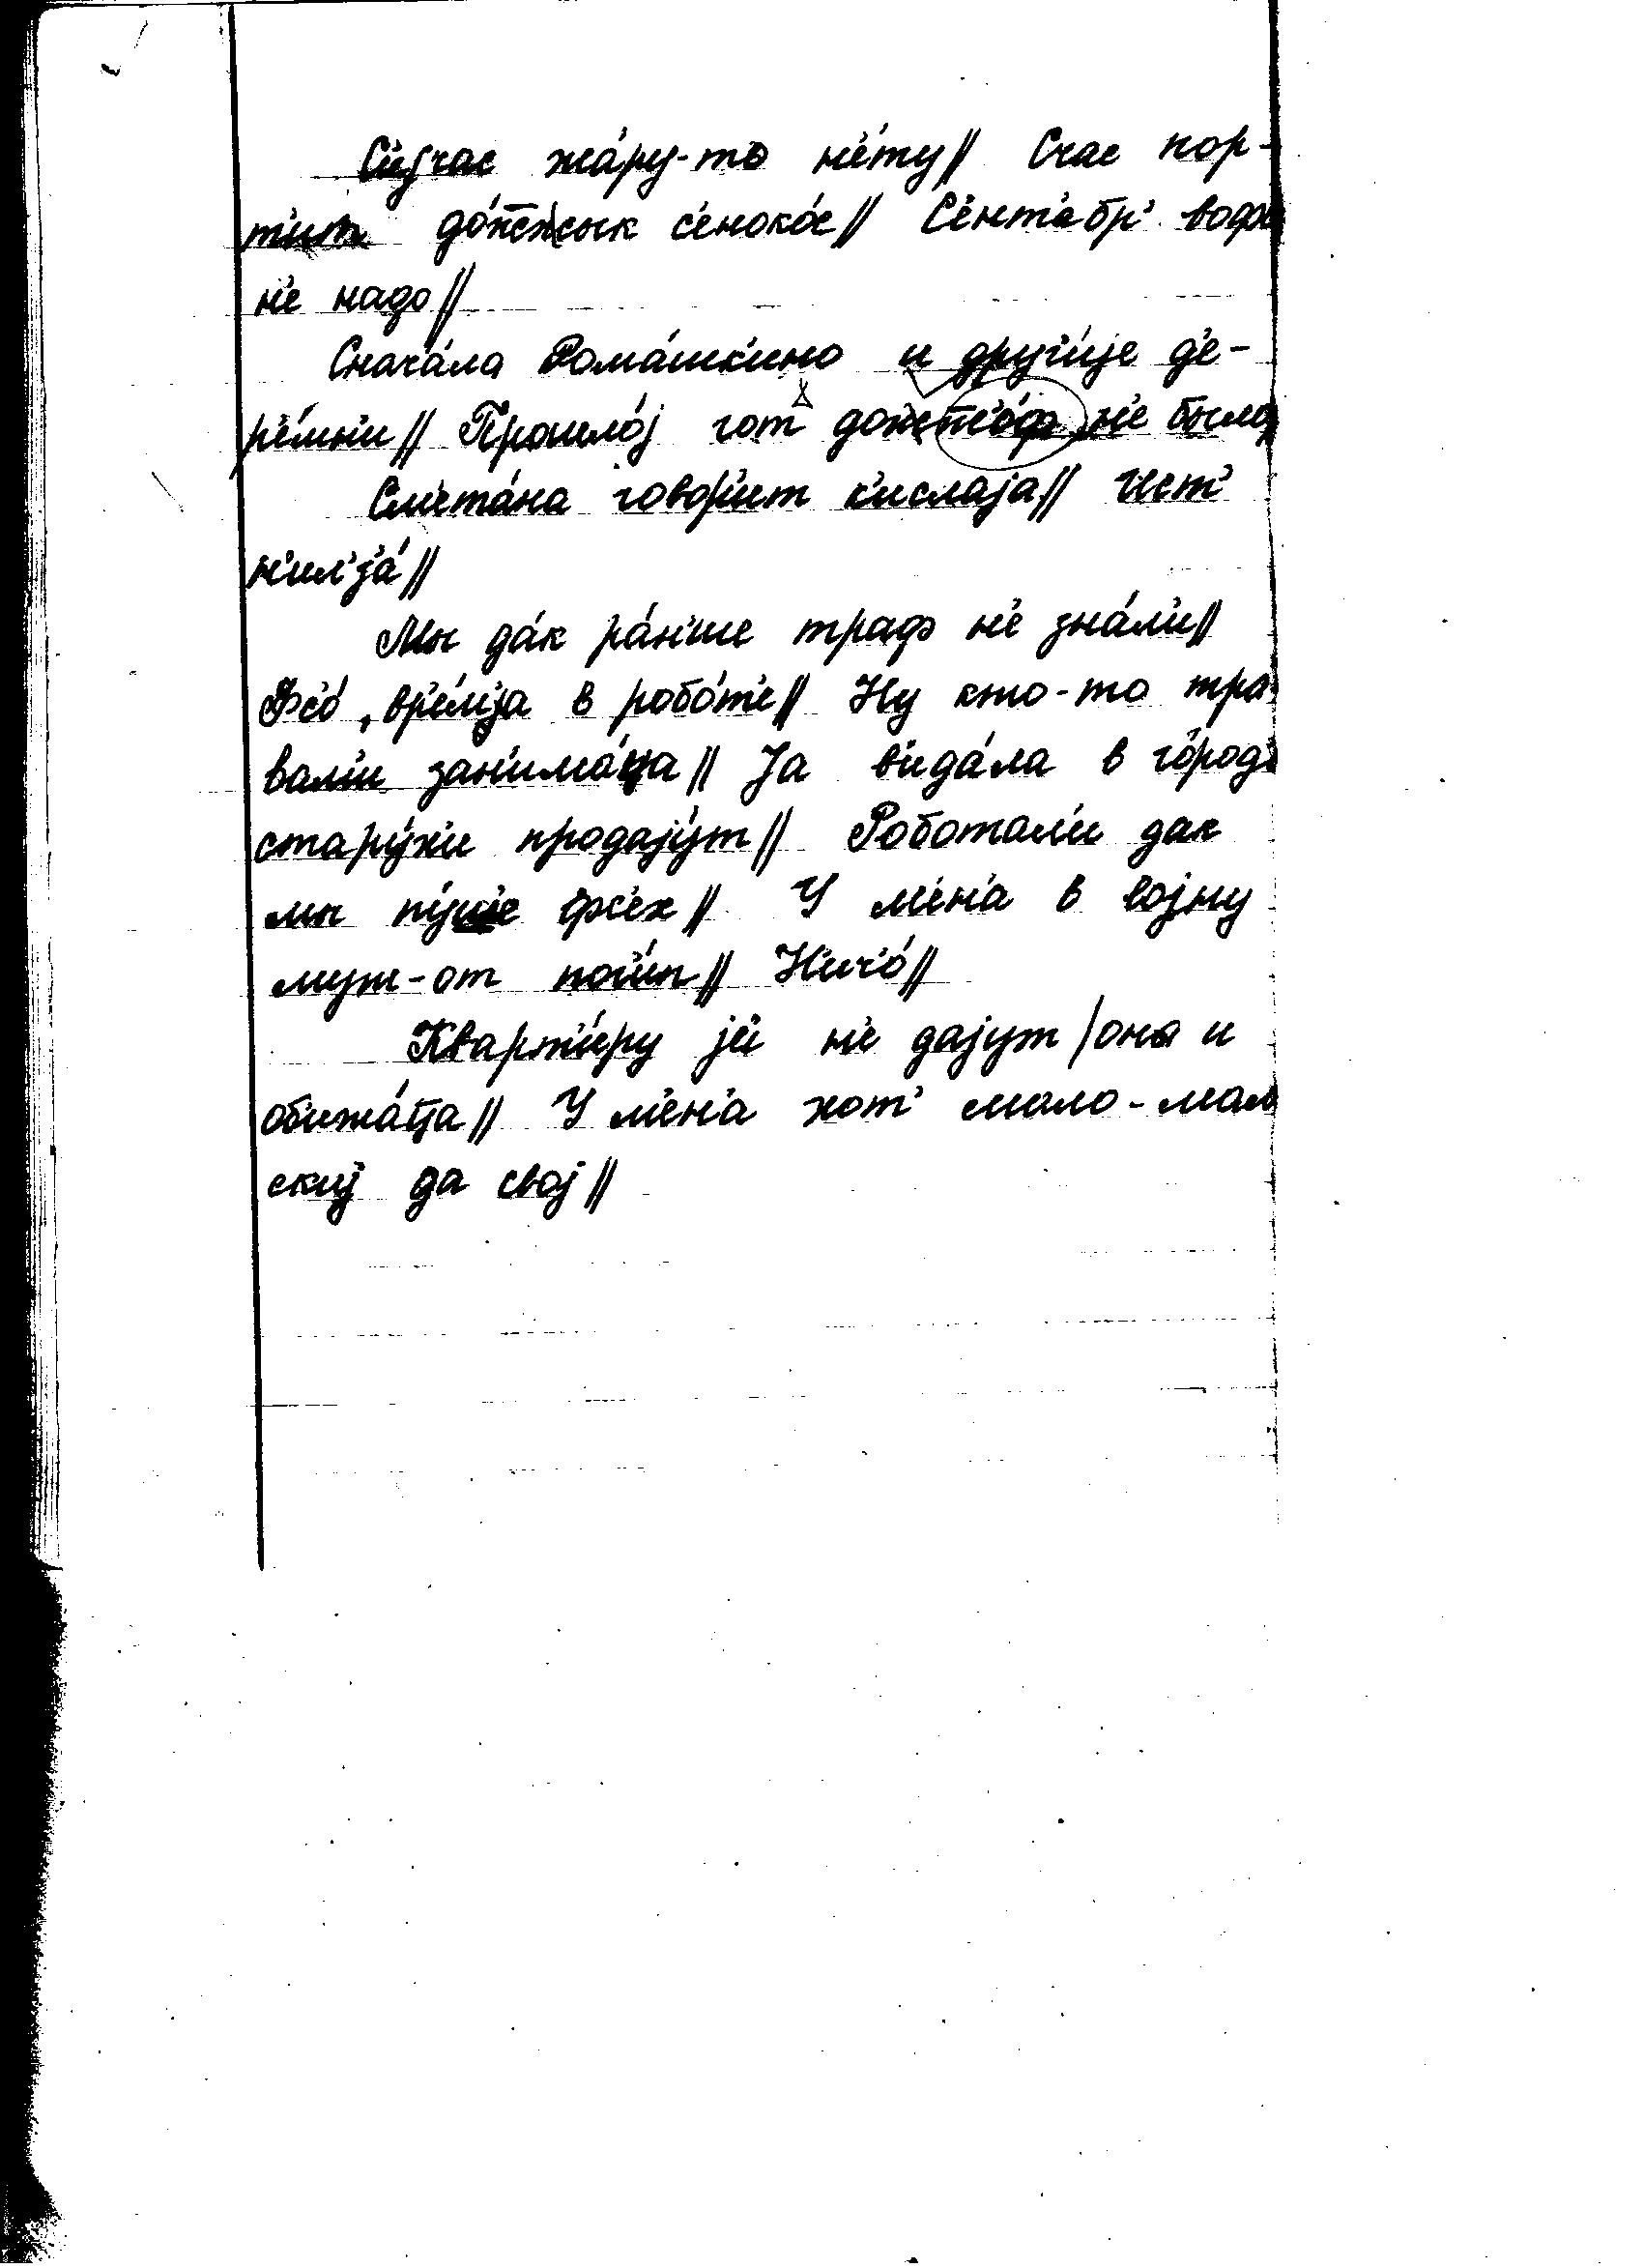 С'иjчас жа́ру-то н'е́ту// Счас пор-
т'ит до́жжык с'еноко́с// С'ент'абр' воды
н'е надо//
Снача́ла Рома́шк'ино и друг'и́jе д'е-
р'е́мн'и// Прошло́j гот дож н'е было
См'ета́на говор'ит к'ислаjа// Ист'
н'ил'з'а́//
Мы да́к ра́н'ше траф н'е зна́л'и//
Фс'о́ вр'е́м'jа в робо́т'е// Ну кто-то тра-
вам'и зан'има́ца// Jа в'ида́ла в го́род'е
стару́х'и продаjу́т// Робо́тал'и дак
мы пу́ше фс'ех// У м'ен'а́ в воjну
муж-от пог'и́п// Н'ич'о́//
Кварт'и́ру jеj н'е даjут/она и
об'ижа́ца// У м'ен'а хот' мало-мал
ск'иj да своj//